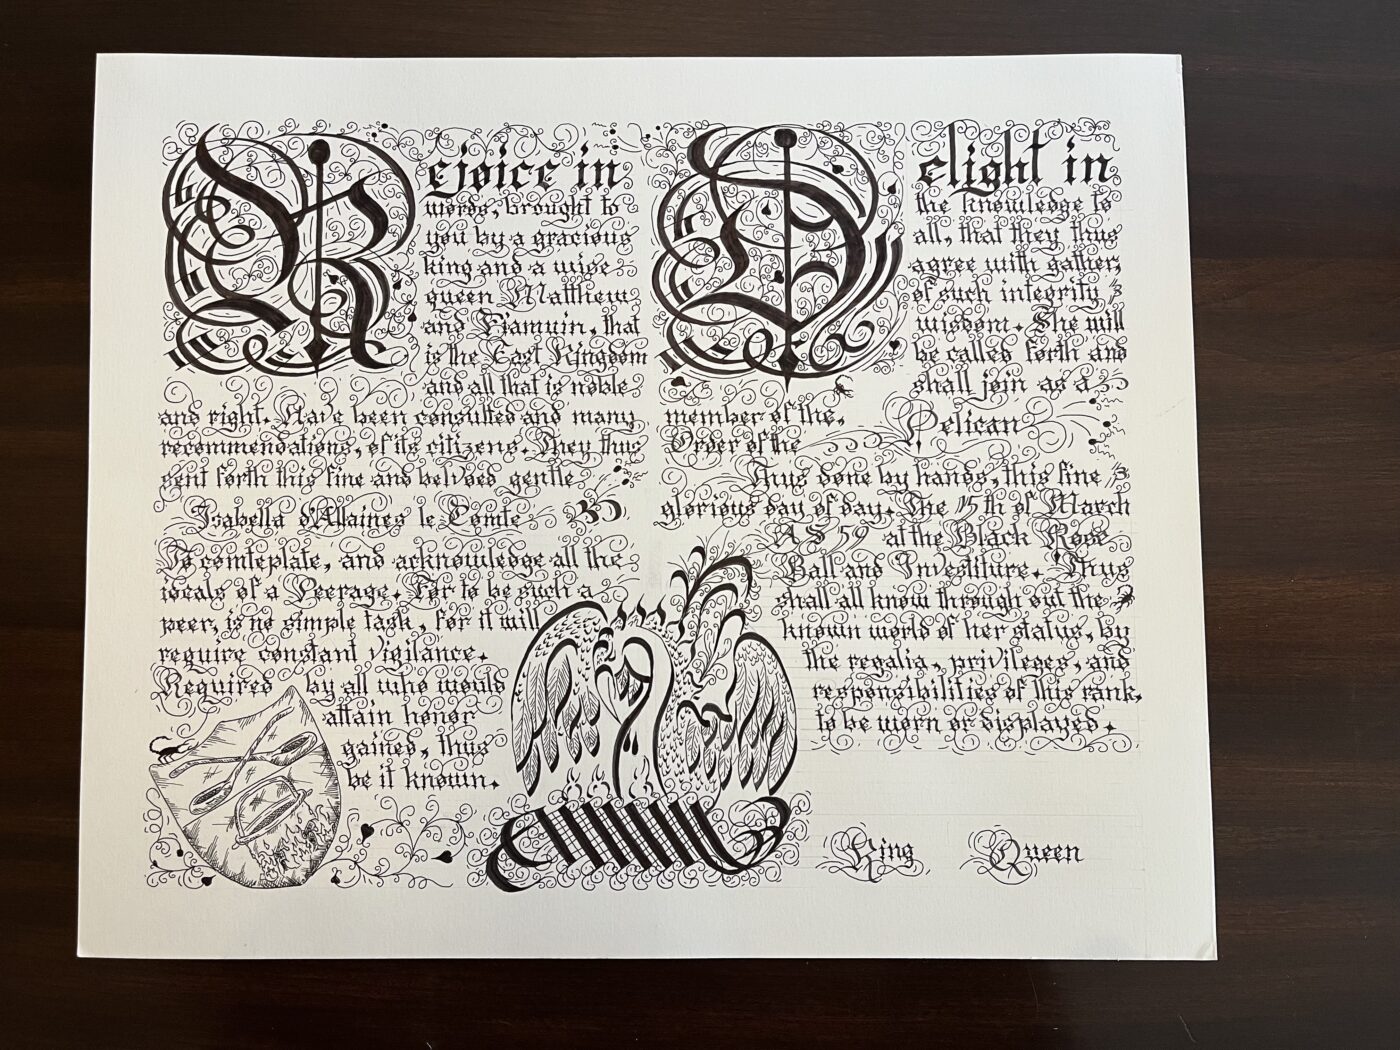 Rejoice in
words, brought to
you by a gracious
king and a wise
queen Matthew
and Fiamuin, that
is the East Kingdom
and all that is noble
and right. Have been consulted and many
recommendations, of its citizens. They thus
sent forth this fine and belvoed gentle
Isabella d'Allaines le Comte
To comteplate, and acknowledge all the
ideals of a Peerage. For to be such a
peer, is no simple task, for it will
require constant vigilance.
Required by all who would
attain honor
gained, thus
be it known.
Delight in
the knowledge to
all, that they thus
agree with gather,
of such integrity
wisdom. She will
be called forth and
shall join as a
member of the,
Order of the Pelican
Thus done by hands, this fine
glorious day of day. The 15th of March
A S 59 at the Black Rose
Ball and Investiture. Thus
shall all know through out the
known world of her status, by
the regalia, privileges, and
responsibilities of this rank,
to be worn or displayed.
King Queen